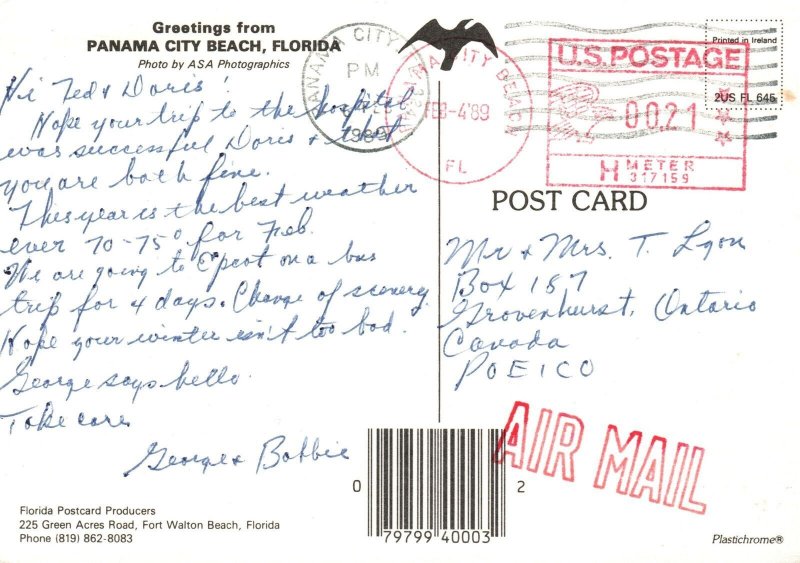 Greetings from
PANAMA CITY BEACH, FLORIDA
Photo by ASA Photographics
Hi Ted & Doris!
Hope your trip to the hospital
was successful Doris & that
you are both fine.
This year is the best weather
ever 70-75° for Feb.
We are going to Epcot on a bus
trip for 4 days. Change of scenery.
Hope your winter isn't too bad.
George says hello.
Take care
George & Bobbie
Florida Postcard Producers
225 Green Acres Road, Fort Walton Beach, Florida
Phone (819) 862-8083
PANAMA CITY
PM
1989
CITY BEACH
FEB-4'89
FL
U.S. POSTAGE
0021
H METER
317159
Printed in Ireland
2US FL 645
POST CARD
Mr & Mrs. T. Lyon
Box 157
Gravenhurst, Ontario
Canada
POE1CO
AIR MAIL
0 79799 40003 2
Plastichrome®